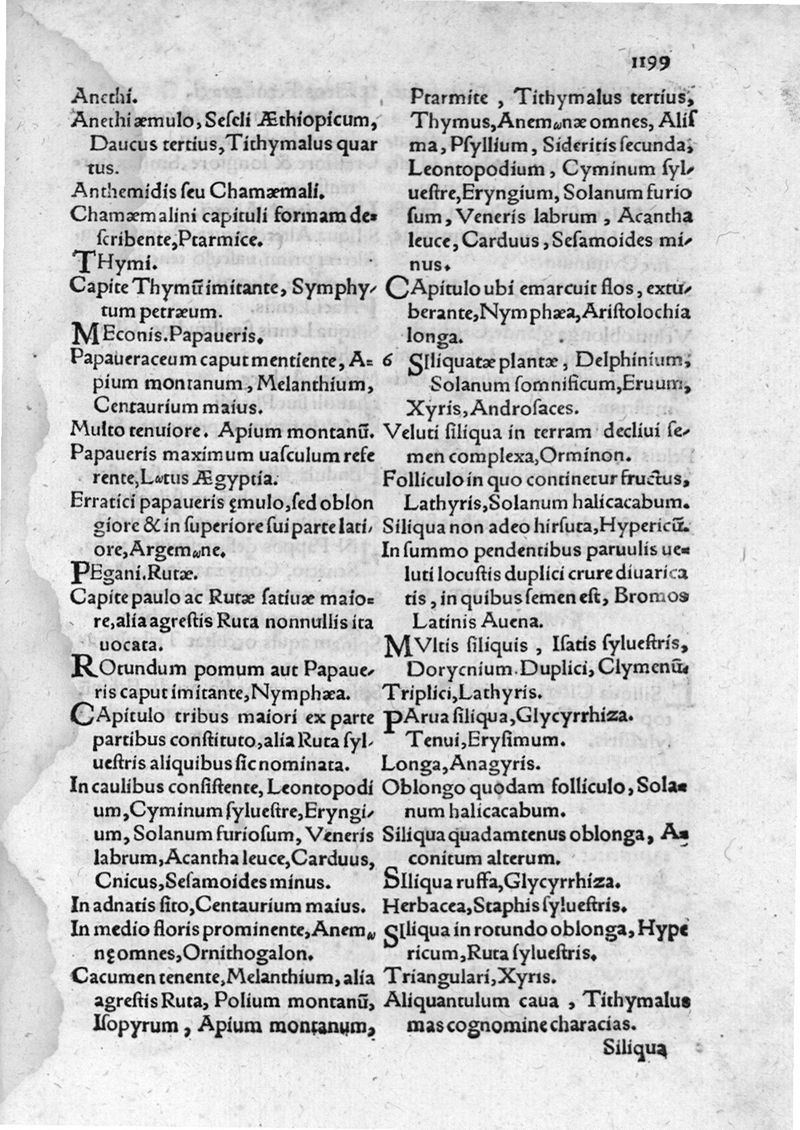 1199
Anethi.
Anethi æmulo, Seſeli Æthiopicum,
Daucus tertius, Tithymalus quar
tus.
Anthemidis ſeu Chamæmali.
Chamæmalini capituli formam de⸗
ſcribente, Ptarmice.
THymi.
Capite Thymũ imitante, Symphy⸗
tum petræum.
MEconis. Papaueris.
Papaueraceum caput mentiente, A⸗
pium montanum, Melanthium,
Centaurium maius.
Multo tenuiore. Apium montanũ.
Papaueris maximum uaſculum refe
rente, Lωtus Ægyptia.
Erratici papaueris ęmulo, ſed oblon
giore & in ſuperiore ſui parte lati⸗
ore, Argemωne.
PEgani. Rutæ.
Capite paulo ac Rutæ ſatiuæ maio⸗
re, alia agreſtis Ruta nonnullis ita
uocata.
ROtundum pomum aut Papaue⸗
ris caput imitante, Nymphæa.
CApitulo tribus maiori ex parte
partibus conſtituto, alia Ruta ſyl⸗
ueſtris aliquibus ſic nominata.
In caulibus conſiſtente, Leontopodi
um, Cyminum ſylueſtre, Eryngi⸗
um, Solanum furioſum, Veneris
labrum, Acantha leuce, Carduus,
Cnicus, Seſamoides minus.
In adnatis ſito, Centaurium maius.
In medio floris prominente, Anemω
nę omnes, Ornithogalon.
Cacumen tenente, Melanthium, alia
agreſtis Ruta, Polium montanũ,
Iſopyrum, Apium montanum,
Ptarmice, Tithymalus tertius,
Thymus, Anemωnæ omnes, Aliſ
ma, Pſyllium, Sideritis ſecunda,
Leontopodium, Cyminum ſyl⸗
ueſtre, Eryngium, Solanum furio
ſum, Veneris labrum, Acantha
leuce, Carduus, Seſamoides mi⸗
nus.
CApitulo ubi emarcuit flos, extu⸗
berante, Nymphæa, Ariſtolochia
longa.
6 SIliquatæ plantæ, Delphinium,
Solanum ſomnificum, Eruum,
Xyris, Androſaces.
Veluti ſiliqua in terram decliui ſe⸗
men complexa, Orminon.
Folliculo in quo continetur fructus,
Lathyris, Solanum halicacabum.
Siliqua non adeo hirſuta, Hypericũ.
In ſummo pendentibus paruulis ue⸗
luti locuſtis duplici crure diuarica
tis, in quibus ſemen eſt, Bromos
Latinis Auena.
MVltis ſiliquis, Iſatis ſylueſtris,
Dorycnium. Duplici, Clymenũ.
Triplici, Lathyris.
PArua ſiliqua, Glycyrrhiza.
Tenui, Eryſimum.
Longa, Anagyris.
Oblongo quodam folliculo, Sola⸗
num halicacabum.
Siliqua quadamtenus oblonga, A⸗
conitum alterum.
SIliqua ruffa, Glycyrrhiza.
Herbacea, Staphis ſylueſtris.
SIliqua in rotundo oblonga, Hype
ricum, Ruta ſylueſtris.
Triangulari, Xyris.
Aliquantulum caua, Tithymalus
mas cognomine characias.
Siliqua